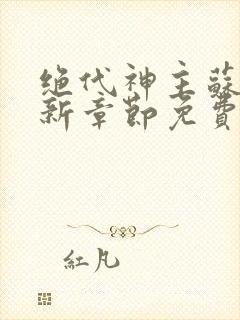 绝代神主蘇
新章節免費
紅凡